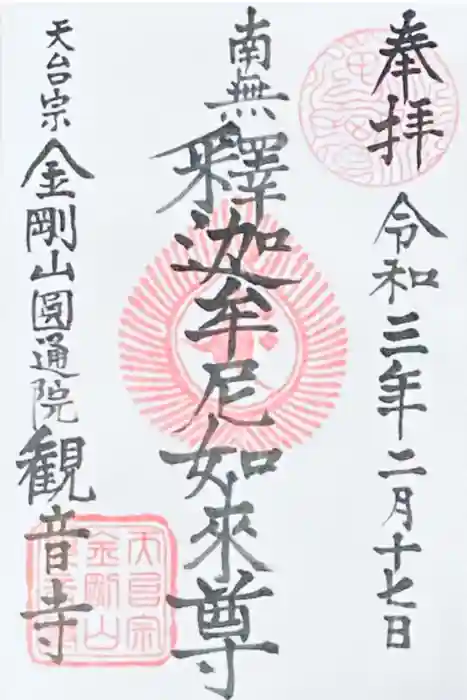 奉拝
令和三年二月十七日
南無釋迦牟尼如來尊
天台宗
金剛山圓通院観音寺